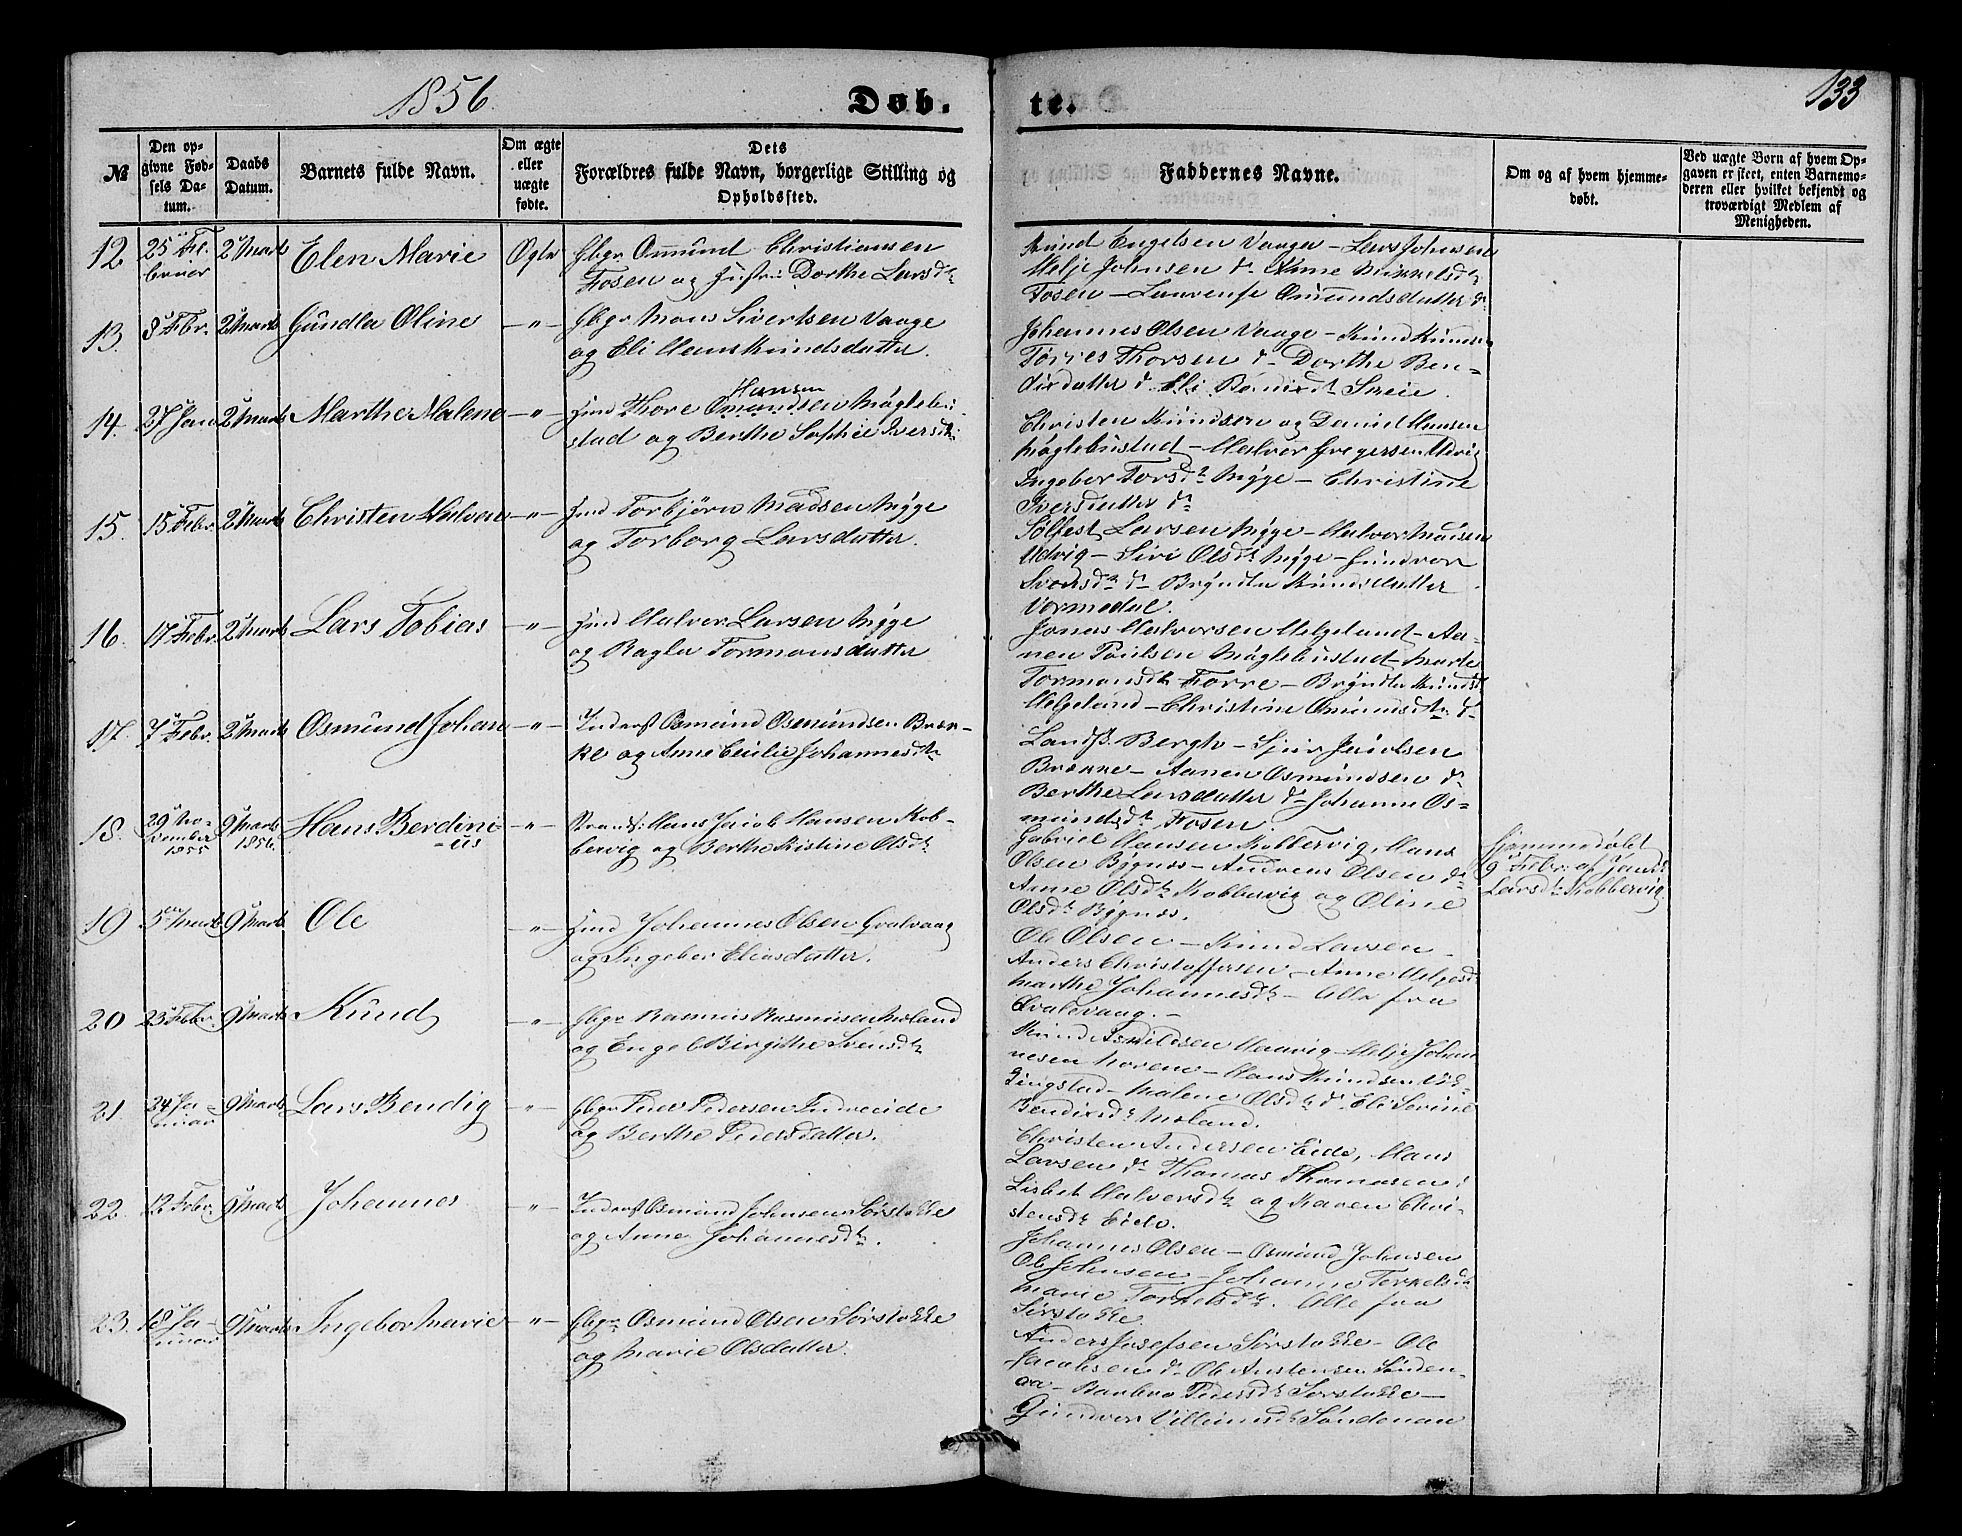 1856.
Døb-
te.
133
№
Den op-
givne Fød-
sels Da-
tum.
Daabs
Datum.
Barnets fulde Navn.
Om ægte
eller
uægte
fødte.
Dets
Forældres fulde Navn, borgerlige Stilling og
Opholdssted.
Faddernes Navne.
Om og af hvem hjemme-
døbt.
Ved uægte Born af hvem Op-
gaven er skeet, enten Barnemo-
deren eller hvilket bekjendt og
troværdigt Medlem af
Menigheden.
12 25 Fe-
bruar 2 Marts Elen Marie Ægte Gbgr Osmund Christiansen
Fosen og Dorthe Larsdtr
Knud Engelsen Vaage - Lars Johnsen
Helje Johnsen do Anne Mikkelsdtr
Fosen - Laurense Osmundsdatter do
13. 8 Febr. 2 Marts Gundla Oline -"- Gbgr Mons Sivertsen Vaage
og Eli Hans Knudsdatter.
Johannes Olsen Vaage - Knud Knudsen
Tørres Thorsen do Dorthe Ben-
dixdatter do Eli Bendixdt Sreie.
14. 27 Jan 2 Marts Marthe Malene -"- Hmd Thore Osmundsen Møglebu-
Hansen
stad og Berthe Sophie Iversdtr
Christen Knudsen og Daniel Hansen
Møglebustad - Halvor Gregersen Udvig
Ingebor Torsdtr Myge - Christine
Iversdatter do
15. 15 Febr. 2 Marts Christen Halvor -"- Hmd Torbjørn Madsen Myge
og Torborg Larsdatter.
Sølfest Larsen Myge - Halvor
Udvig - Siri Olsdtr Myge - Gundvor
Svensdtr do Bryndla Knudsdatter
Vormedal.
16. 17 Febr. 2 Marts Lars Tobias -"- Hmd Halvor Larsen Myge
og Ragla Tormonsdatter
Jonas Halvorsen Helgeland - Aa-
nen Poulsen Møglebustad - Marte
Tormonsdtr Førre - Bryndla Knudsd
Helgeland - Christine Osmundsdtr do
17. 7 Febr. 2 Marts Osmund Johan -"- Inderst Osmund Osmundsen Bræk-
ke og Anne Cecilie Johannesdtr
Bergh - Sjur
Brække - Aanen Osmundsen do
Berthe Larsdatter do Johanne Os-
mundsdtr Fosen.
18. 29 No-
vember
1855 9 Marts
1856. Hans Berdini-
us -"- Strands. Hans Jacob Hansen Kob-
bervig og Berthe Kistine Olsdtr
Gabriel Hansen Kobbervig, Hans
Olsen Bygnes - Andreas Olsen do
Anne Olsdtr Kobbervig og Oline
Olsdtr Bygnes.
Hjemmedøbt
9 Febr. af
Larsdtr Kobbervig.
19 5 Marts 9 Marts Ole -"- Hmd Johannes Olsen Gvalvaag
og Ingebor Eliasdatter.
Ole Olsen - Knud Larsen -
Anders Christoffersen - Anne Helgesd
Marthe Johannesdtr - Alle fra
Gvalevaag. -
20 23 Febr. 9 Marts Knud -"- Gbgr Rasmus Rasmussen Moland
og Engel Birgithe Svensdtr
Knud Asmildsen Haavig - Helje Johan-
nesen - Hans Knudsen
Ringstad - Malene Olsdtr do Eli Serine
Bendixdtr Moland.
21. 24 Ja-
nuar 9 Marts Lars Bendig -"- Gbgr Peder Pedersen Indreeide
og Berthe Pedersdatter.
Christen Andersen Eide, Hans
Larsen do Thomas Thomasen
Lisbet Halversdtr og Karen Chri-
stensdtr Eide.
22. 12 Febr. 9 Marts Johannes -"- Inderst Osmund Johnsen Sørstokke
og Anne Johannesdtr.
Johannes Olsen - Osmund Johnsen
Ole Johnsen - Johanne Torkelsdtr
Marie Torkelsdtr. Alle fra
Sørstokke
23. 18 Ja-
nuar 9 Marts Ingebor Marie -"- Gbgr Osmund Olsen Sørstokke
og Marie Olsdatter.
Anders Josefsen Sørstokke - Ole
Jacobsen do Ole Austensen Sønden-
aa - Barbro Pedersdtr Sørstokke -
Gundvor Søndenaa